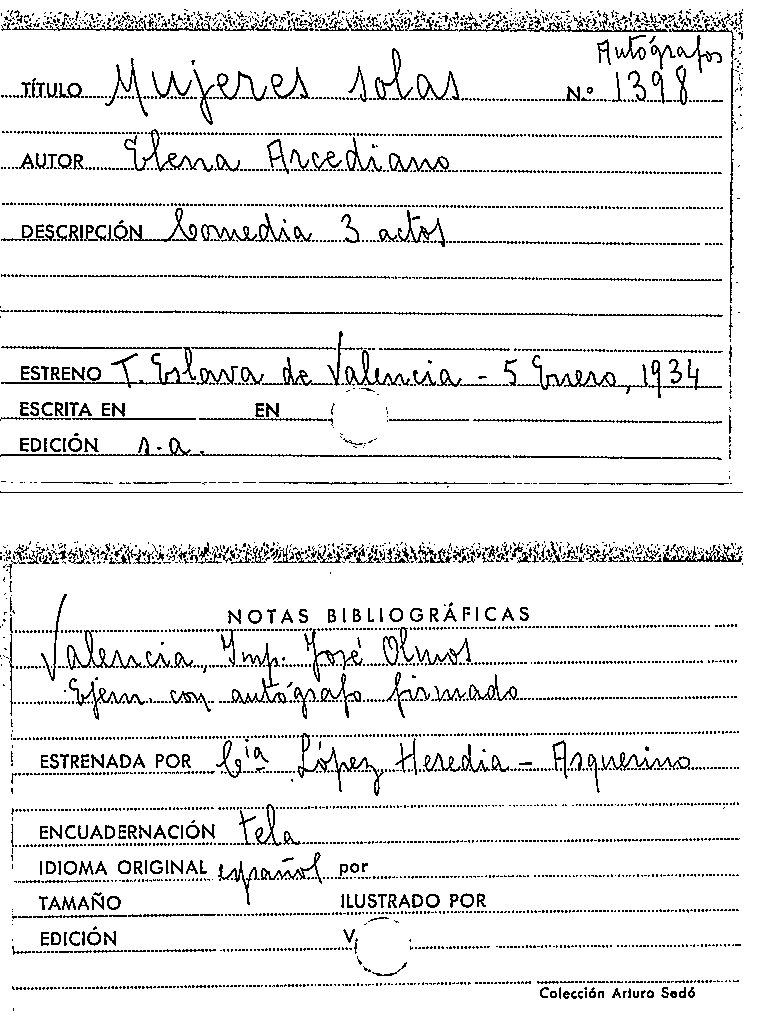 Autógrafos
TÍTULO Mujeres solas N.º 1398
AUTOR Elena Arcediano
DESCRIPCIÓN Comedia 3 actos
ESTRENO T. Eslava de Valencia - 5 Enero, 1934
ESCRITA EN EN
EDICIÓN s.a.
NOTAS BIBLIOGRÁFICAS
Valencia, Imp. José Olmos
Ejem. con autógrafo firmado
ESTRENADA POR Cía López Heredia - Asquerino
ENCUADERNACIÓN tela
IDIOMA ORIGINAL español por
TAMAÑO ILUSTRADO POR
EDICIÓN V
Colección Arturo Sedó